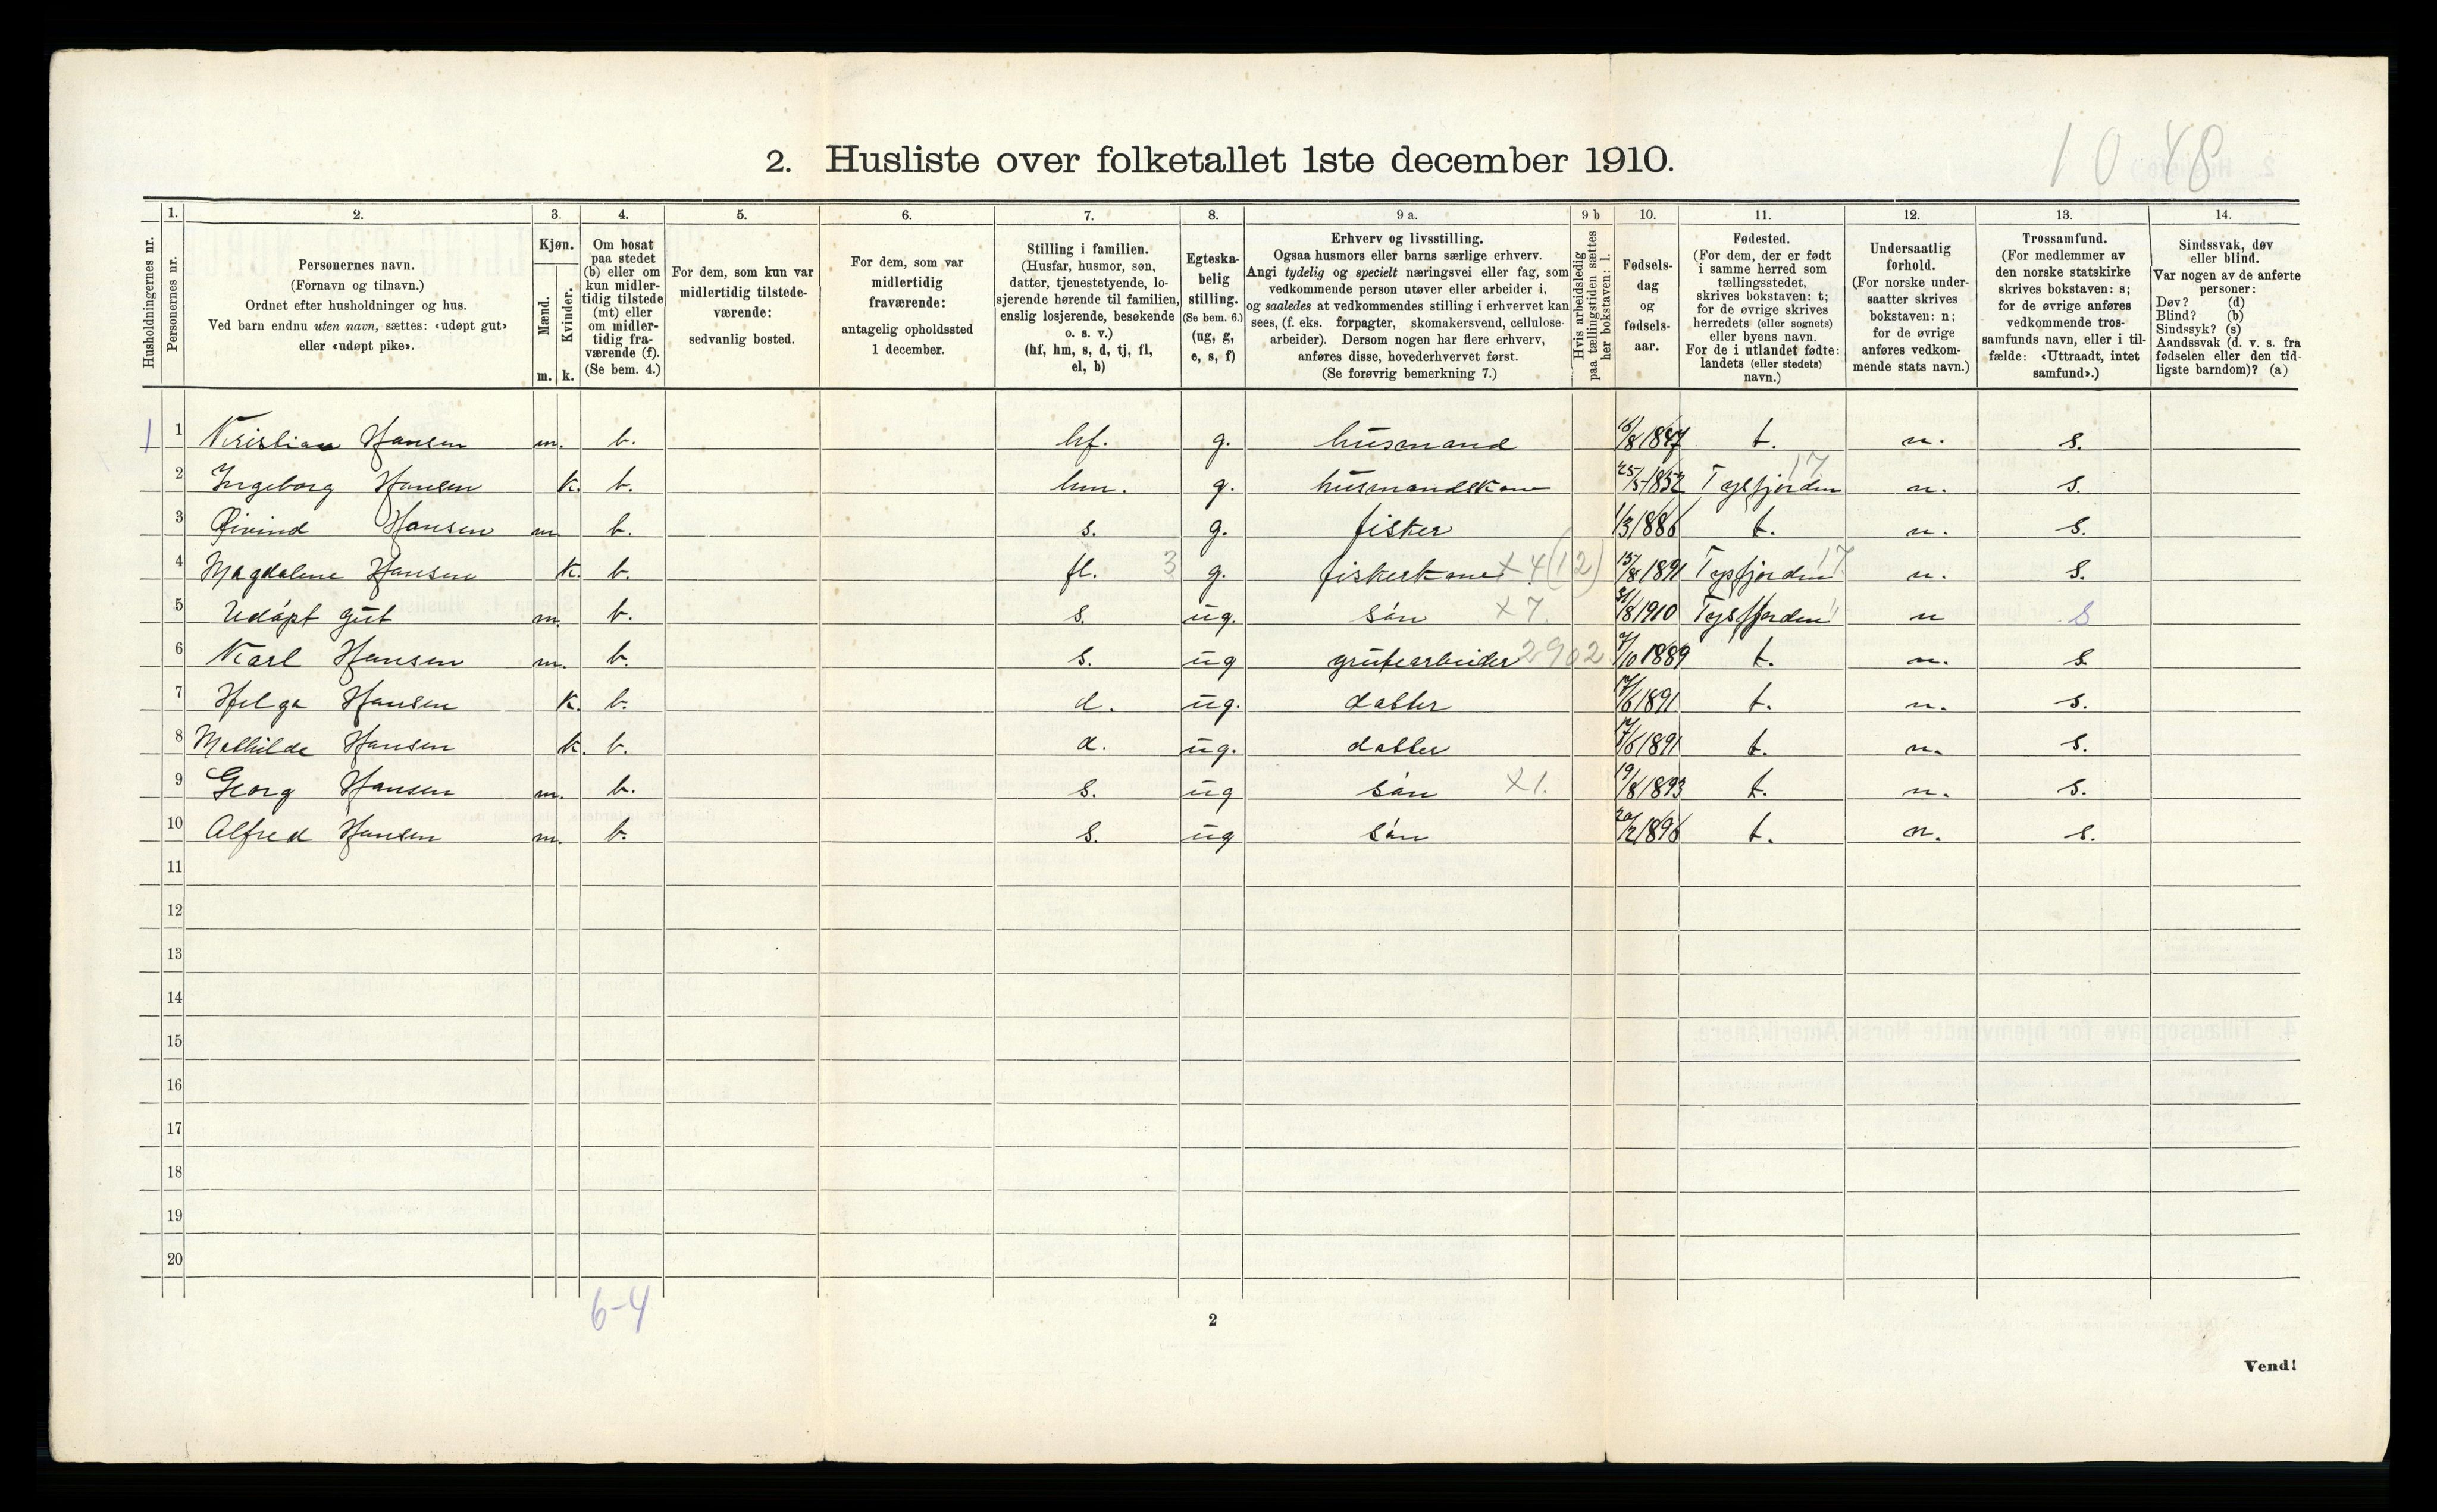 10 48
2. Husliste over folketallet 1ste december 1910.
Husholdningernes nr.
1.
Personernes nr.
2.
Personernes navn.
(Fornavn og tilnavn.)
Ordnet efter husholdninger og hus.
Ved barn endnu uten navn, sættes: «udøpt gut»
eller «udøpt pike».
3.
Kjøn.
Mænd.
Kvinder.
m. k.
4.
Om bosat
paa stedet
(b) eller om
kun midler-
tidig tilstede
(mt) eller
om midler-
tidig fra-
værende (f).
(Se bem. 4.)
5.
For dem, som kun var
midlertidig tilstede-
værende:
sedvanlig bosted.
6.
For dem, som var
midlertidig
fraværende:
antagelig opholdssted
1 december.
7.
Stilling i familien.
(Husfar, husmor, søn,
datter, tjenestetyende, lo-
sjerende hørende til familien,
enslig losjerende, besøkende
o. s. v.)
(hf, hm, s, d, tj, fl,
el, b)
8.
Egteska-
belig
stilling.
(Se bem. 6.)
(ug, g,
e, s, f)
9 a.
Erhverv og livsstilling.
Ogsaa husmors eller barns særlige erhverv.
Angi tydelig og specielt næringsvei eller fag, som
vedkommende person utøver eller arbeider i,
og saaledes at vedkommendes stilling i erhvervet kan
sees, (f. eks. forpagter, skomakersvend, cellulose-
arbeider). Dersom nogen har flere erhverv,
anføres disse, hovederhvervet først.
(Se forøvrig bemerkning 7.)
9 b
Hvis arbeidsledig
paa tællingstiden sættes
her bokstaven: l.
10.
Fødsels-
dag
og
fødsels-
aar.
11.
Fødested.
(For dem, der er født
i samme herred som
tællingsstedet,
skrives bokstaven: t;
for de øvrige skrives
herredets (eller sognets)
eller byens navn.
For de i utlandet fødte:
landets (eller stedets)
navn.)
12.
Undersaatlig
forhold.
(For norske under-
saatter skrives
bokstaven: n;
for de øvrige
anføres vedkom-
mende stats navn.)
13.
Trossamfund.
(For medlemmer av
den norske statskirke
skrives bokstaven: s;
for de øvrige anføres
vedkommende tros-
samfunds navn, eller i til-
fælde: «Uttraadt, intet
samfund».)
14.
Sindssvak, døv
eller blind.
Var nogen av de anførte
personer:
Døv? (d)
Blind? (b)
Sindssyk? (s)
Aandssvak (d. v. s. fra
fødselen eller den tid-
ligste barndom)? (a)
1 1 Kristian Hansen m. b. hf. g. husmand 1847 t. n. s.
2 Ingeborg Hansen k. b. hm. g. husmandskone 25/5 1852 Tysfjorden 17 n. s.
3 Øivind Hansen m. b. s. g. fisker 1/3 1886 t. n. s.
4 Magdalene Hansen k. b. fl. 3 g. fiskerkone x 4 (12) 15/8 1891 Tysfjorden 17 n. s.
5 Udøpt gut m. b. s. ug. søn x 7. 31/8 1910 Tysfjorden n s
6 Karl Hansen m. b. s. ug grubearbeider 2902 /10 1889 t. n. s
7 Helga Hansen k. b. d. ug. datter 17/6 1891 t. n. s.
8 Mathilde Hansen k. b. d. ug. datter 17/6 1891 t. n. s.
9 Georg Hansen m. b. s. ug søn x 1. 19/8 1893 t. n. s.
10 Alfred Hansen m. b. s. ug søn 20/2 1896 t. n. s.
11
12
13
14
15
16
17
18
19
20
6-4
2
Vend!